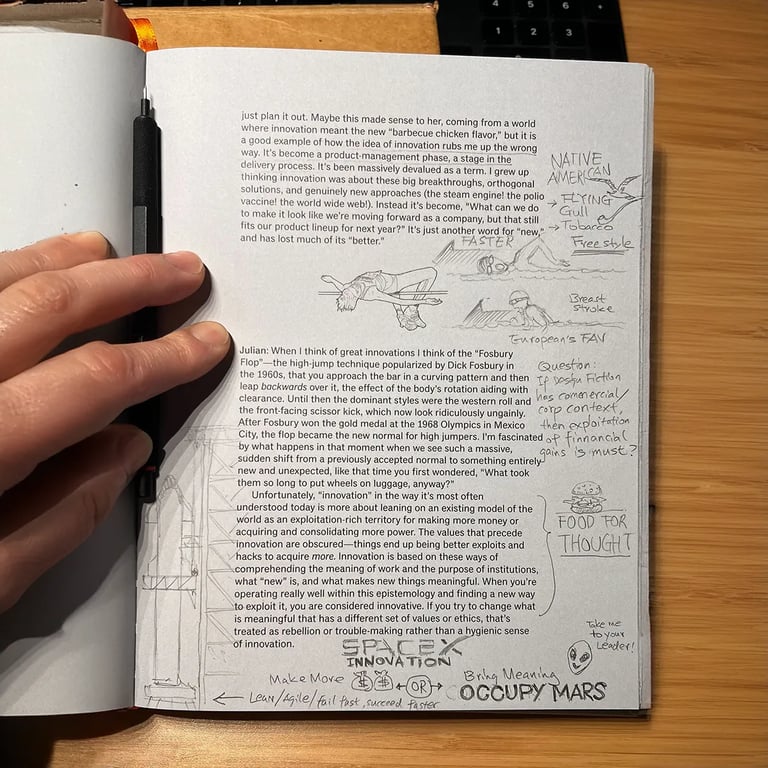 4 5 6
1 2 3
just plan it out. Maybe this made sense to her, coming from a world
where innovation meant the new “barbecue chicken flavor,” but it is
a good example of how the idea of innovation rubs me up the wrong
way. It’s become a product-management phase, a stage in the
delivery process. It’s been massively devalued as a term. I grew up
thinking innovation was about these big breakthroughs, orthogonal
solutions, and genuinely new approaches (the steam engine! the polio
vaccine! the world wide web!). Instead it’s become, “What can we do
to make it look like we’re moving forward as a company, but that still
fits our product lineup for next year?” It’s just another word for “new,”
and has lost much of its “better.”
NATIVE
AMERICAN
→ FLYING
Gull
→ Tobacco
Free style
FASTER
Breast
stroke
European's FAV
Julian: When I think of great innovations I think of the “Fosbury
Flop”—the high-jump technique popularized by Dick Fosbury in
the 1960s, that you approach the bar in a curving pattern and then
leap backwards over it, the effect of the body’s rotation aiding with
clearance. Until then the dominant styles were the western roll and
the front-facing scissor kick, which now look ridiculously ungainly.
After Fosbury won the gold medal at the 1968 Olympics in Mexico
City, the flop became the new normal for high jumpers. I’m fascinated
by what happens in that moment when we see such a massive,
sudden shift from a previously accepted normal to something entirely
new and unexpected, like that time you first wondered, “What took
them so long to put wheels on luggage, anyway?”
Unfortunately, “innovation” in the way it’s most often
understood today is more about leaning on an existing model of the
world as an exploitation-rich territory for making more money or
acquiring and consolidating more power. The values that precede
innovation are obscured—things end up being better exploits and
hacks to acquire more. Innovation is based on these ways of
comprehending the meaning of work and the purpose of institutions,
what “new” is, and what makes new things meaningful. When you’re
operating really well within this epistemology and finding a new way
to exploit it, you are considered innovative. If you try to change what
is meaningful that has a different set of values or ethics, that’s
treated as rebellion or trouble-making rather than a hygienic sense
of innovation.
Question:
If Design Fiction
has comercial/
corp context,
then exploitation
of finnancial
gains is must?
FOOD FOR
THOUGHT
Take me
to your
Leader!
SPACEX
INNOVATION
Make More $ $ ← OR → Bring Meaning
OCCUPY MARS
← Lean/Agile/fail fast, succeed faster